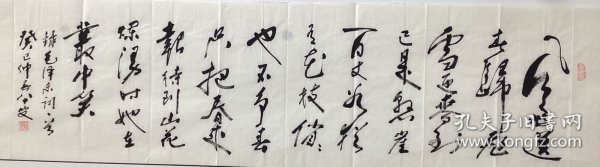 风雨送
春歸飛
雪迎春到
已是懸崖
百丈冰犹
有花枝俏
也不争春
只把春来
報待到山花
爛漫时她在
叢中笑
錄毛泽东词一首
癸巳仲夏
孔夫子旧书网